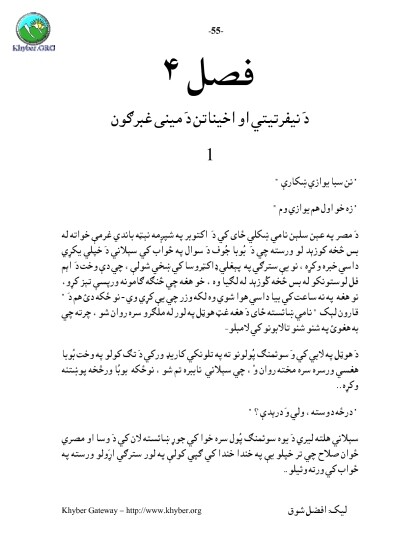 -55-
Khyber.ORG
فصل ۴
دَ نیفرتیتي او اخیناتن دَ مینی غبرګون
1
" تن سبا یوازي ښکارې "
" زه خو اول هم یوازي وم "
دَ مصر په عین سلین نامي ښکلي ځای کي دَ اکتوبر په شپږمه نېټه باندي غرمې خواته له
بس څخه کوزېد لو ورسته چي دَ بُوبا جُود سوال په ځواب کي سېلاني دَ خپلي یکړې
داسي خبره وکړه ، نو یې سترګي په پېغلي ډاکټروسا کي ښخي شولې ، چي دې وخت دَ اېم
فل لوستونکو له بس څخه کُوزېد له لګیا وه ، خو هغه چي څنګه ګامونه ورپسې تېز کړو،
نو هغه په نه ساعت کي بیا داسي هوا شوې وه لکه وزر چي یې کړي وي - نو ځکه دئ هم دَ "
قارون لېک " نامي ښائسته ځای دَ هغه غټ هوټل په لور له ملګرو سره روان شو ، چرته چي
به هغوئ په شنو شنو تالابونو کي لامبلو-
دَ هوټل په لابي کي وَ سوئمنګ پُولونو ته په تلونکي کارېډ ورکي دَ تګ کولو په وخت بُوبا
هغسي ورسره سره مخته روان وُ ، چي سېلاني نابېره تم شو ، نوځکه بوبُا ورڅخه پوښتنه
وکړه..
" درځه دوسته ، ولي وَ درېدې ؟ "
سېلاني هلته لېري دَ یوه سوئمنګ پُول سره خوا کي جوړ ښائسته لان کي دَ وسا او مصري
ځوان صلاح جي تر خپلو یې په خندا خندا کي ګپي کولې په لور سترګي اړولو ورسته په
ځواب کي ورته وئیلو ..
Khyber Gateway – http://www.khyber.org
لیک: افضل شوق